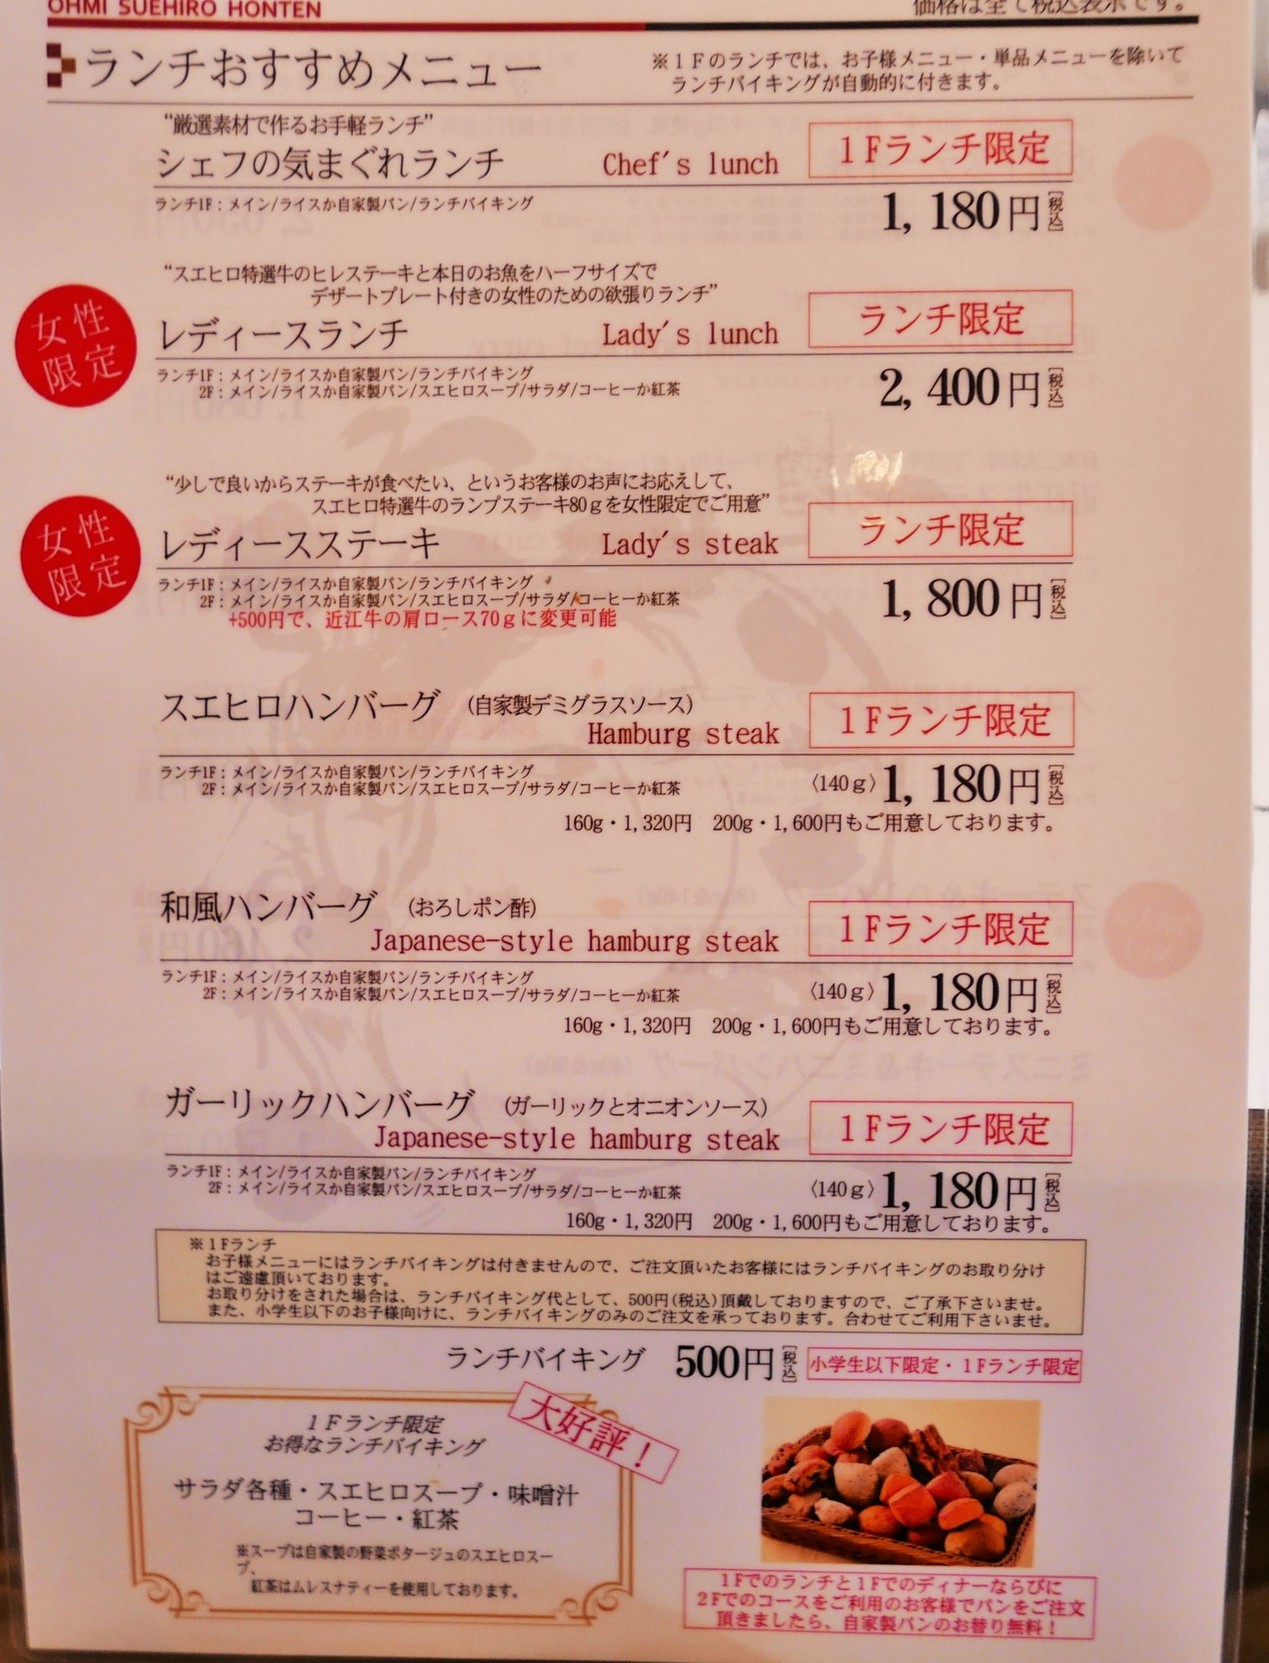 OHMI SUEHIRO HONTEN
価格は全て税込表示です。
ランチおすすめメニュー
※１Ｆのランチでは、お子様メニュー・単品メニューを除いて
ランチバイキングが自動的に付きます。
“厳選素材で作るお手軽ランチ”
シェフの気まぐれランチ Chef's lunch １Fランチ限定
ランチ1F：メイン/ライスか自家製パン/ランチバイキング
1,180円[税込]
“スエヒロ特選牛のヒレステーキと本日のお魚をハーフサイズで
デザートプレート付きの女性のための欲張りランチ”
女性限定
レディースランチ Lady's lunch ランチ限定
ランチ1F：メイン/ライスか自家製パン/ランチバイキング
2F：メイン/ライスか自家製パン/スエヒロスープ/サラダ/コーヒーか紅茶
2,400円[税込]
“少しで良いからステーキが食べたい、というお客様のお声にお応えして、
スエヒロ特選牛のランプステーキ80ｇを女性限定でご用意”
女性限定
レディースステーキ Lady's steak ランチ限定
ランチ1F：メイン/ライスか自家製パン/ランチバイキング
2F：メイン/ライスか自家製パン/スエヒロスープ/サラダ/コーヒーか紅茶
1,800円[税込]
+500円で、近江牛の肩ロース70ｇに変更可能
スエヒロハンバーグ （自家製デミグラスソース）
Hamburg steak １Fランチ限定
ランチ1F：メイン/ライスか自家製パン/ランチバイキング
2F：メイン/ライスか自家製パン/スエヒロスープ/サラダ/コーヒーか紅茶
〈140ｇ〉1,180円[税込]
160g・1,320円　200g・1,600円もご用意しております。
和風ハンバーグ （おろしポン酢）
Japanese-style hamburg steak １Fランチ限定
ランチ1F：メイン/ライスか自家製パン/ランチバイキング
2F：メイン/ライスか自家製パン/スエヒロスープ/サラダ/コーヒーか紅茶
〈140ｇ〉1,180円[税込]
160g・1,320円　200g・1,600円もご用意しております。
ガーリックハンバーグ （ガーリックとオニオンソース）
Japanese-style hamburg steak １Fランチ限定
ランチ1F：メイン/ライスか自家製パン/ランチバイキング
2F：メイン/ライスか自家製パン/スエヒロスープ/サラダ/コーヒーか紅茶
〈140ｇ〉1,180円[税込]
160g・1,320円　200g・1,600円もご用意しております。
※１Fランチ
お子様メニューにはランチバイキングは付きませんので、ご注文頂いたお客様にはランチバイキングのお取り分け
はご遠慮頂いております。
お取り分けをされた場合は、ランチバイキング代として、500円(税込)頂戴しておりますので、ご了承下さいませ。
また、小学生以下のお子様向けに、ランチバイキングのみのご注文を承っております。合わせてご利用下さいませ。
ランチバイキング 500円[税込] 小学生以下限定・１Fランチ限定
大好評！
１Ｆランチ限定
お得なランチバイキング
サラダ各種・スエヒロスープ・味噌汁
コーヒー・紅茶
※スープは自家製の野菜ポタージュのスエヒロスー
プ、
紅茶はムレスナティーを使用しております。
１Fでのランチと１Fでのディナーならびに
２Fでのコースをご利用のお客様でパンをご注文
頂きましたら、自家製パンのお替り無料！